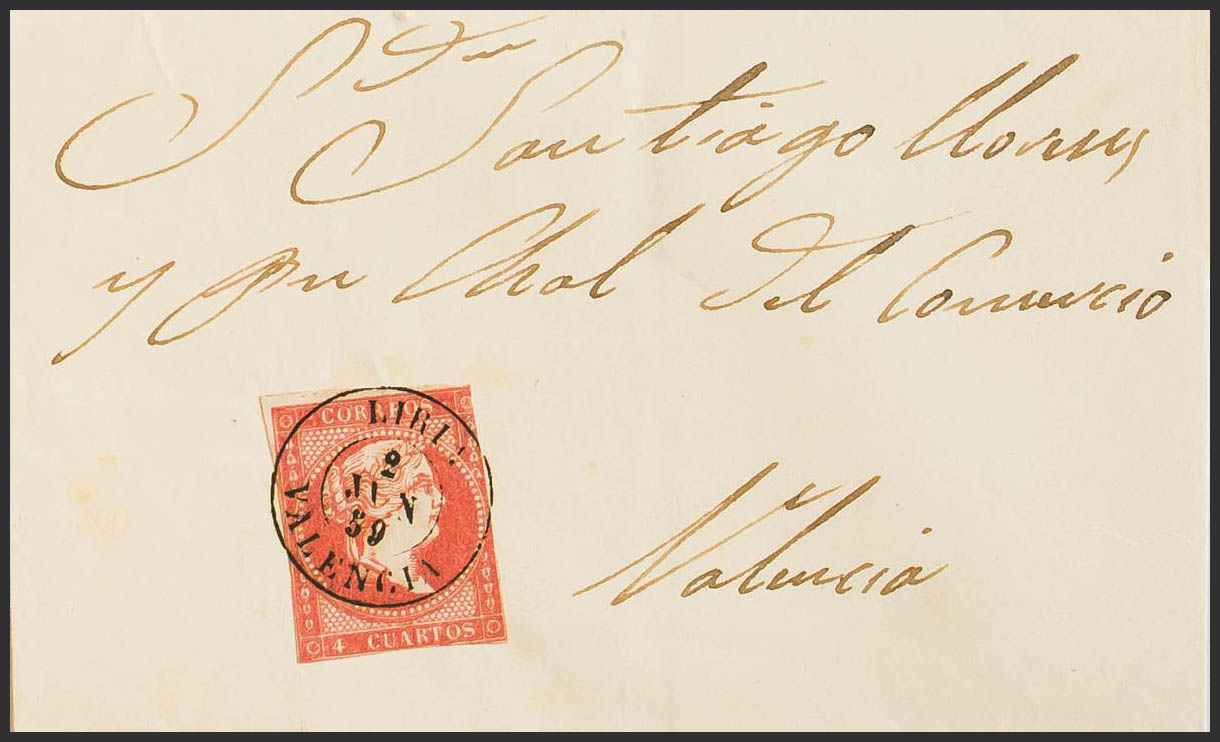 Sr Dn Santiago Llorens
y pr Chal del Comercio
Valencia
CORREOS
LIRIA
2
JUN
59
VALENCIA
4 CUARTOS